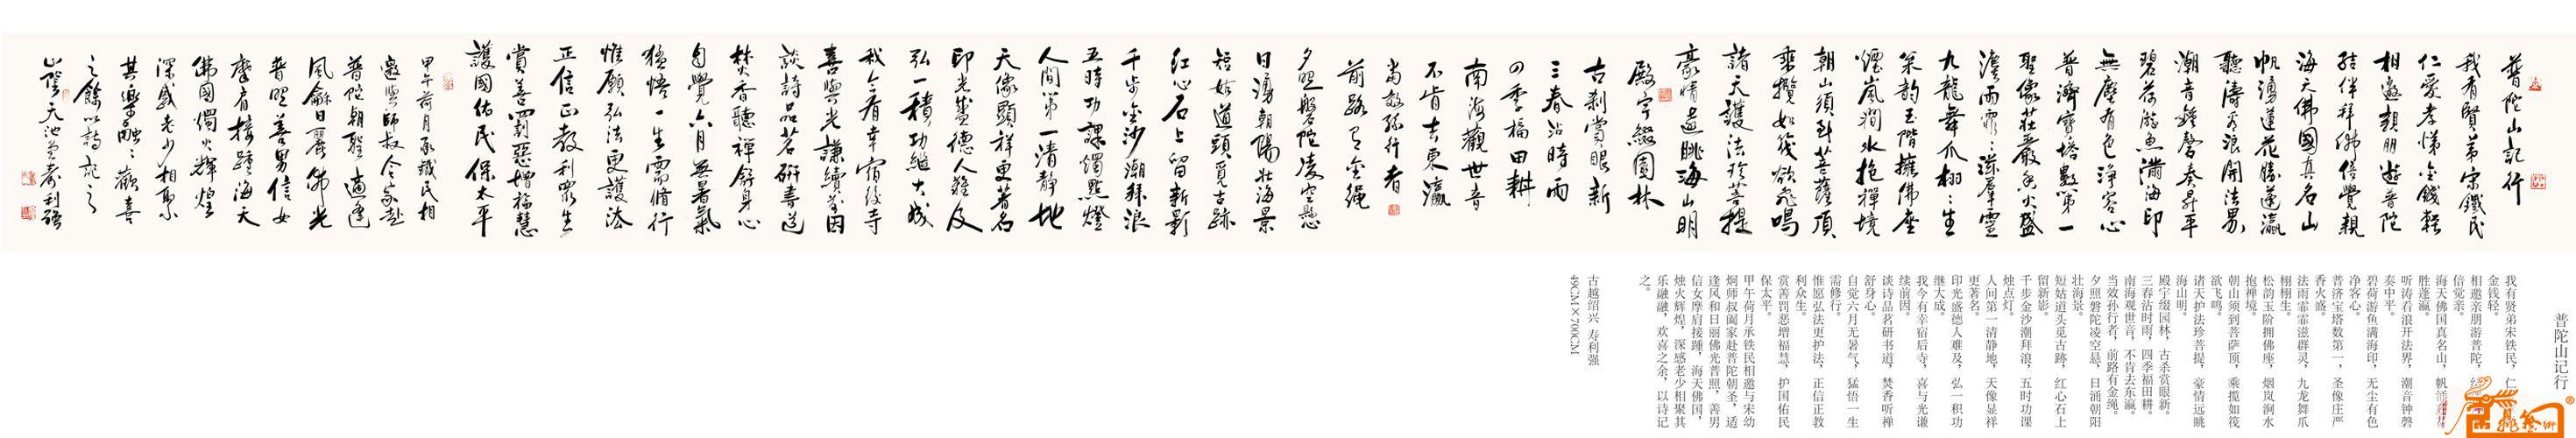 普陀山記行
我有賢弟宋鐵民
仁愛孝悌金錢輕
相邀親朋遊普陀
結伴拜佛倍覺親
海天佛國真名山
帆湧蓮花勝蓬瀛
聽濤看浪開法界
潮音鐘磬奏昇平
碧荷游魚滿海印
無塵有色淨客心
普濟寶塔數第一
聖像莊嚴香火盛
濃雨霏霏滋羣靈
九龍舞爪栩栩生
松韵玉階擁佛座
煙嵐澗水抱禪境
朝山須到菩薩頂
乘攬如筏欲飛鳴
諸天護法珍菩提
豪情遠眺海山明
殿宇綴園林
古刹賞眼新
三春沾時雨
四季福田耕
南海觀世音
不肯去東瀛
當效孫行者
前路有金繩
夕照磐陀凌空懸
日湧朝陽壯海景
短姑道頭覓古跡
紅心石上留新影
千步金沙潮拜浪
五時功課燭點燈
人間第一清静地
天像顯祥更著名
印光盛德人難及
弘一積功繼大成
我今有幸宿後寺
喜與光謙續前因
談詩品茗研書道
焚香聽禪舒身心
自覺六月無暑氣
猛悟一生需脩行
惟願弘法更護法
正信正教利眾生
賞善罰惡增福慧
護國佑民保太平
甲午荷月承鐵民相
邀與師叔令家赴
普陀朝聖適逢
風和日麗佛光
普照善男信女
摩肩接踵海天
佛國燭火輝煌
深感老少相聚
其樂融融歡喜
之餘以詩記之
普陀山记行
我有贤弟宋铁民，仁
金钱轻。
相邀亲朋游普陀，结
倍觉亲。
海天佛国真名山，帆涌
胜蓬瀛。
听涛看浪开法界，潮音钟磬
奏中平。
碧荷游鱼满海印，无尘有色
净客心。
普济宝塔数第一，圣像庄严
香火盛。
法雨霏霏滋群灵，九龙舞爪
栩栩生。
松韵玉阶拥佛座，烟岚涧水
抱禅境。
朝山须到菩萨顶，乘揽如筏
欲飞鸣。
诸天护法珍菩提，豪情远眺
海山明。
殿宇缀园林，古杀赏眼新。
三春沾时雨，四季福田耕。
南海观世音，不肯去东瀛。
当效孙行者，前路有金绳。
夕照磐陀凌空悬，日涌朝阳
壮海景。
短姑道头觅古跡，红心石上
留新影。
千步金沙潮拜浪，五时功课
烛点灯。
人问第一清静地，天像显祥
更著名。
印光盛德人难及，弘一积功
继大成。
我今有幸宿后寺，喜与光谦
续前因。
谈诗品茗研书道，焚香听禅
舒身心。
自觉六月无暑气，猛悟一生
需修行。
惟愿弘法更护法，正信正教
利众生。
赏善罚恶增福慧，护国佑民
保太平。
甲午荷月承铁民相邀与宋幼
炯师叔阖家赴普陀朝圣，适
逢风和日丽佛光普照，善男
信女摩肩接踵，海天佛国，
烛火辉煌，深感老少相聚其
乐融融，欢喜之余，以诗记
之。
古越绍兴 寿利强
49CM×700CM